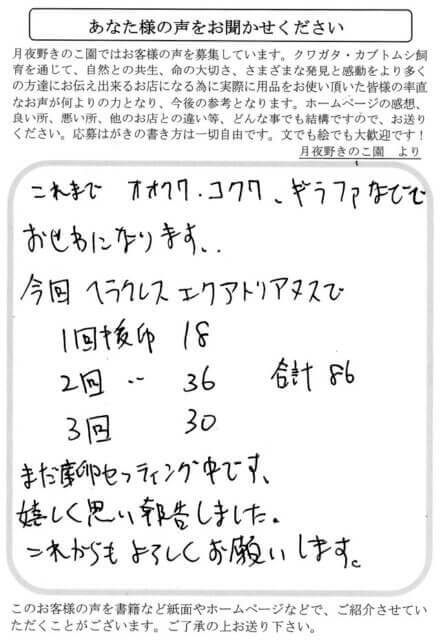 あなた様の声をお聞かせください
月夜野きのこ園ではお客様の声を募集しています。クワガタ・カブトムシ飼
育を通じて、自然との共生、命の大切さ、さまざまな発見と感動をより多く
の方達にお伝え出来るお店になる為に実際に用品をお使い頂いた皆様の率直
なお声が何よりの力となり、今後の参考となります。ホームページの感想、
良い所、悪い所、他のお店との違い等、どんな事でも結構ですので、お送り
ください。応募はがきの書き方は一切自由です。文でも絵でも大歓迎です！
月夜野きのこ園　より
これまで オオクワ、コクワ、ギラファなどで
おせわになります．．
今回 ヘラクレス エクアトリアヌスで
1回採卵 18
2回 〃 36 合計 86
3回 30
まだ産卵セッティング中です、
嬉しく思い報告しました。
これからもよろしくお願いします。
このお客様の声を書籍など紙面やホームページなどで、ご紹介させてい
ただくことがございます。ご了承の上お送り下さい。